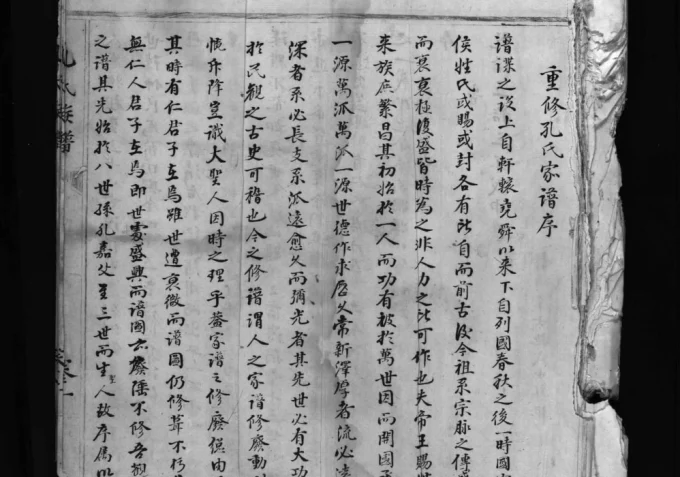 重修孔氏家譜序
譜諜之設上自軒轅堯舜以來下自列國春秋之後一時國
侯姓氏或賜或封各有所自而前古後今祖系宗脉之傳
而衰衰極復盛皆時為之非人力之所可作也夫帝王賜
来族庶繁昌其初始扵一人而功有被扵萬世因而開國
一源萬派萬派一源世德作求歷久常新澤厚者流必遠
深者系必長支系派遠愈久而彌光者其先世必有大功
扵民觀之古史可稽也今之修譜謂人之家譜修廢動
慨斤降豈識大聖人因時之理乎蓋家譜之修廢俱由
其時有仁君子在焉雖世遭衰微而譜圖仍修葺不朽
無仁人君子在焉即世處盛興而譜圖亦廢墮不修吾觀
之譜其先始扵八世孫孔嘉父至三世而生聖人故序屬以
孔氏族譜